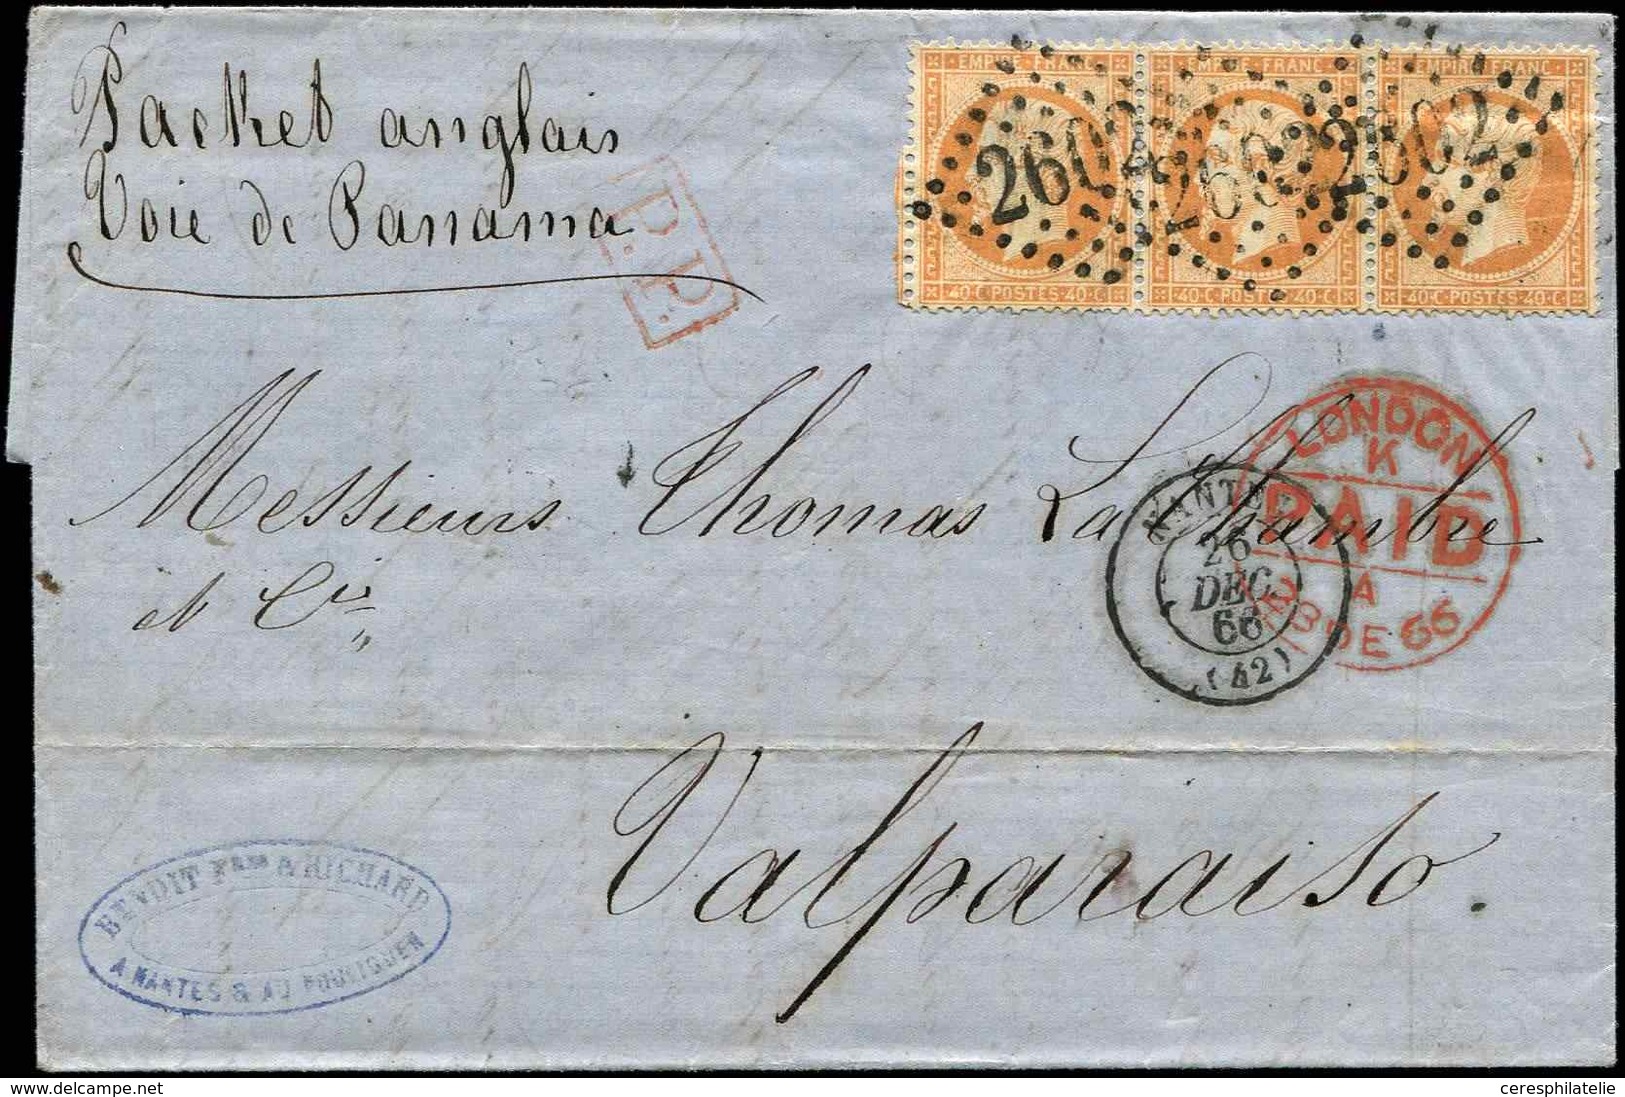 Packet anglais
Voie de Panama
P.P.
EMPIRE FRANC
EMPIRE FRANC
EMPIRE FRANC
2602
2602
2602
40·C POSTES 40·C
40·C POSTES 40·C
40·C POSTES 40·C
Messieurs Thomas La Chambre
et Cie
Valparaiso.
LONDON
K
PAID
A
28 DE 66
NANTES
26
DEC.
66
(42)
BENDIT & RICHARD
A NANTES & AU POULIGUEN
www.delcampe.net
ceresphilatelie